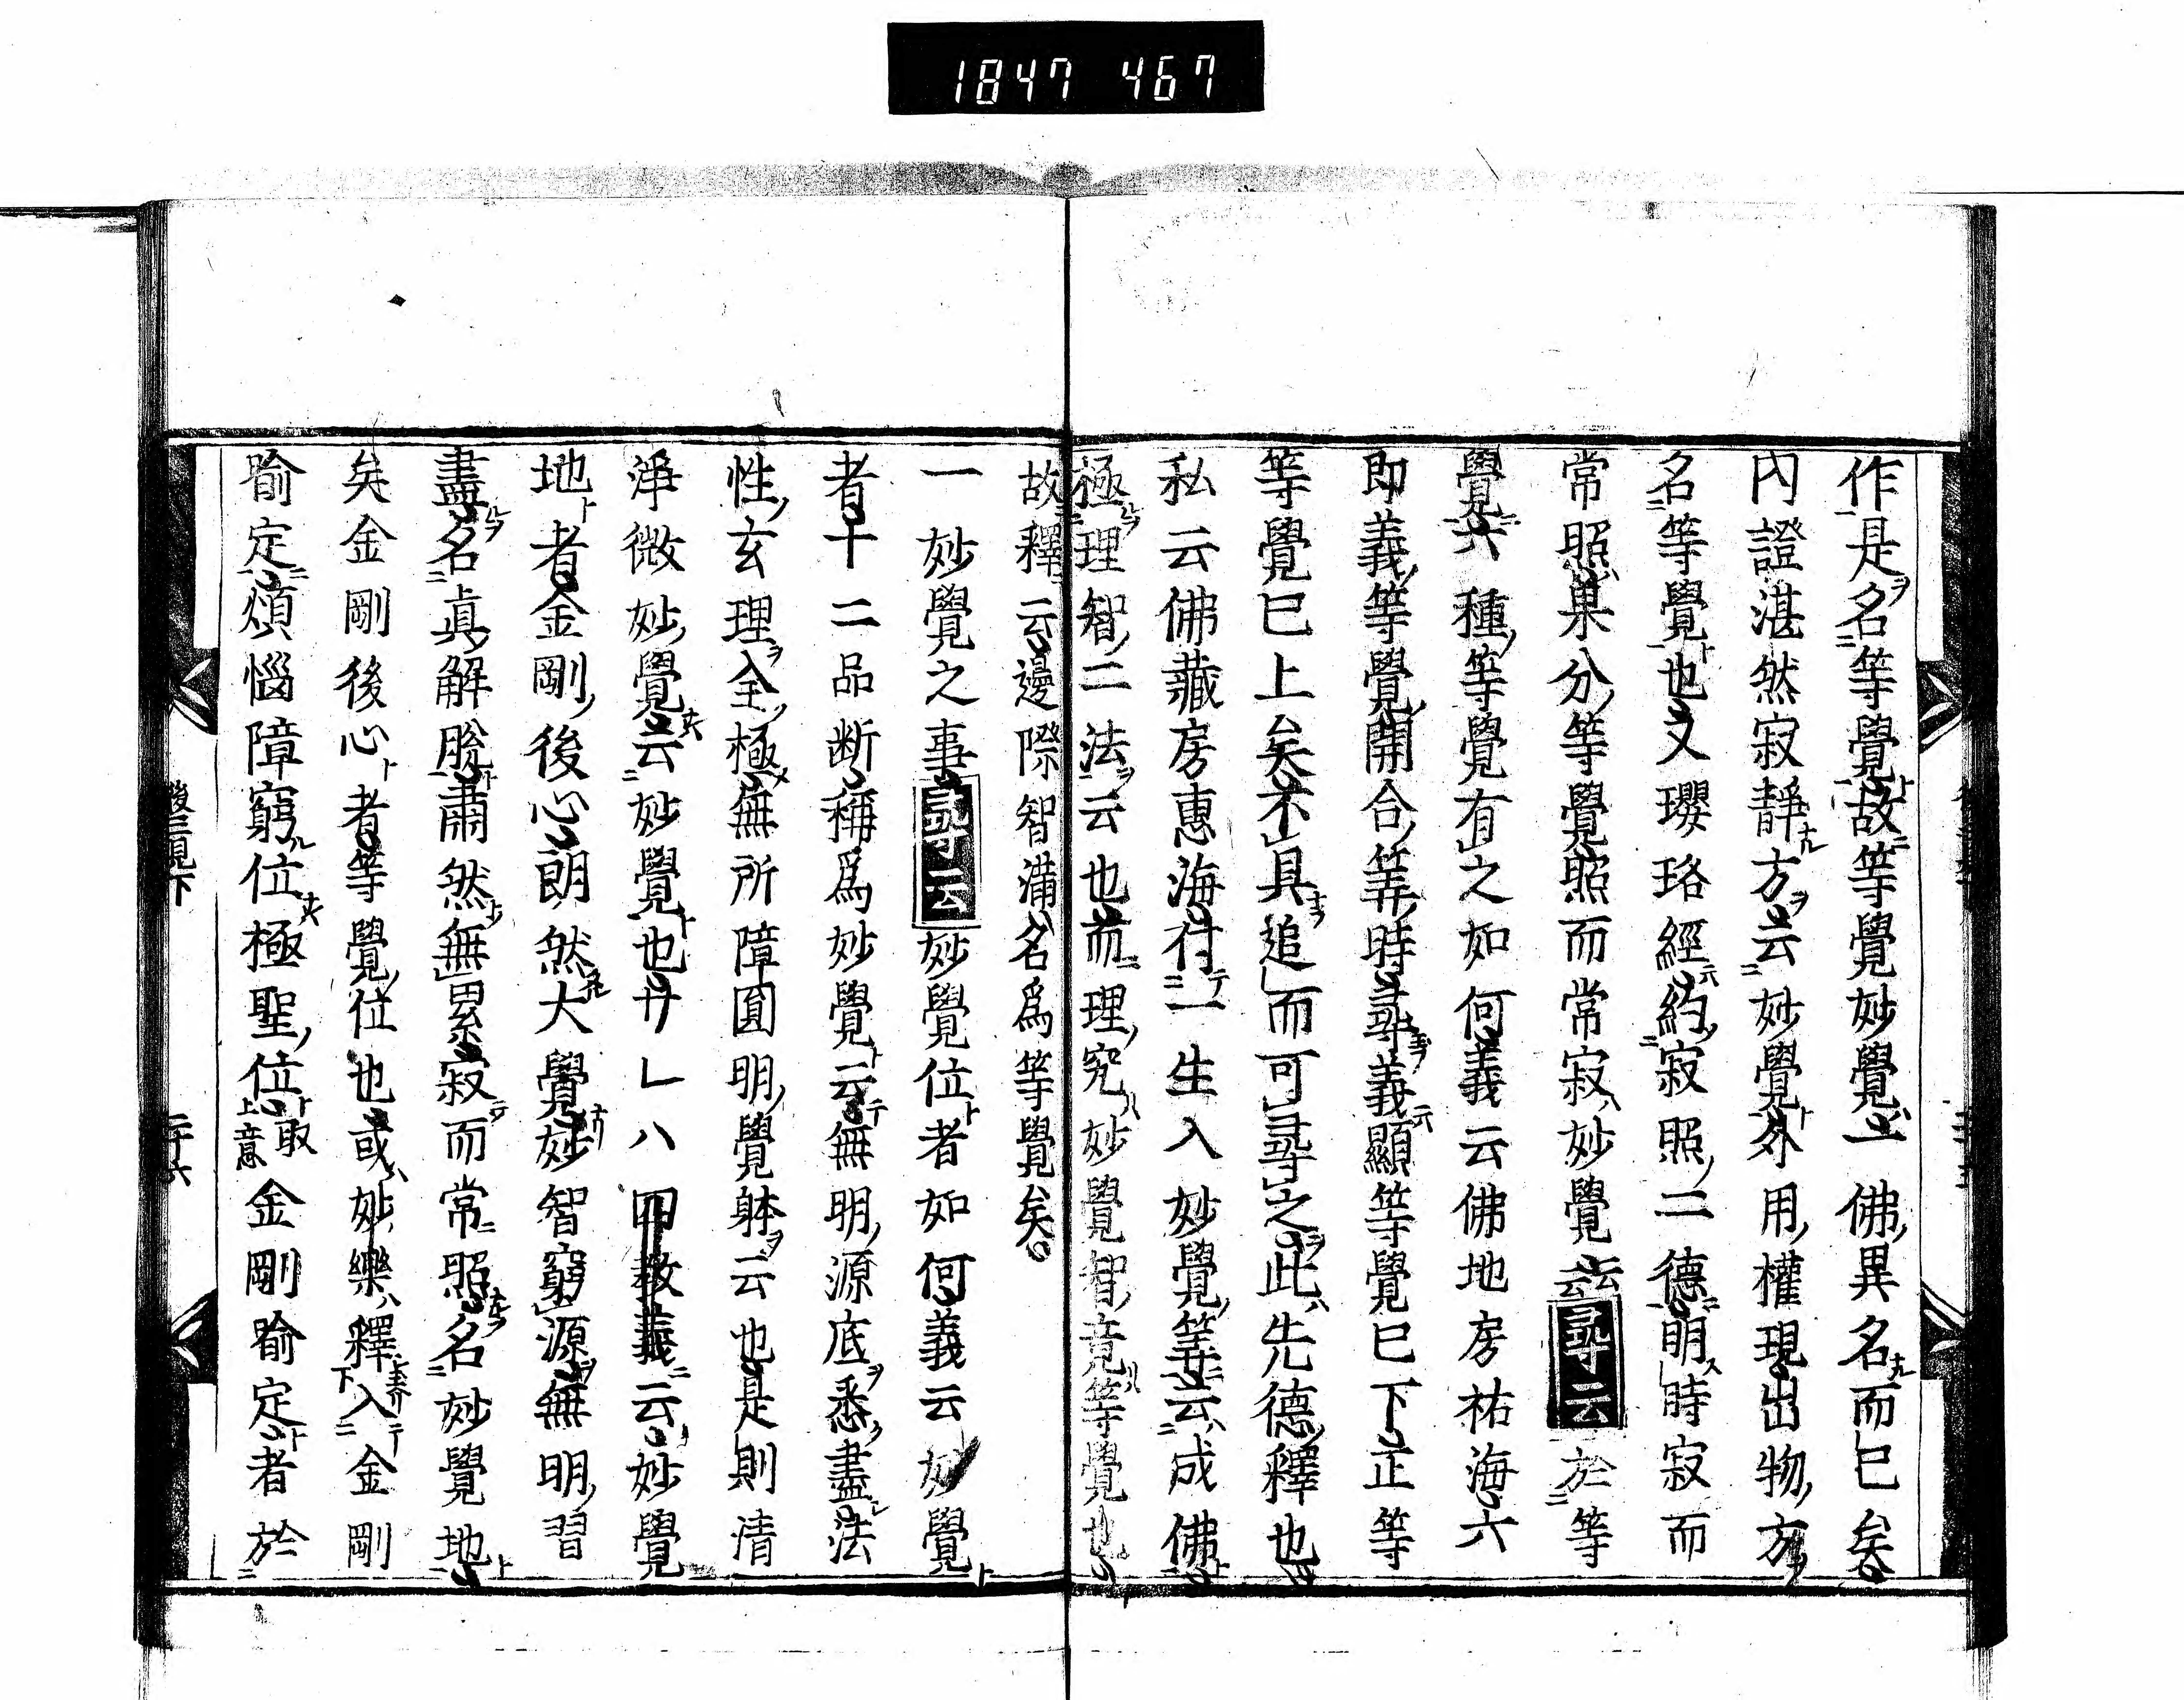 1847 467
作是名等覺故等覺妙覺一佛異名而已矣
内證湛然寂靜方云妙覺外用權現出物方
名等覺也又瓔珞經約寂照二德明時寂而
常照果分等覺照而常寂妙覺云云尋云於等
覺六種等覺有之如何義云佛地房祐海六
即義等覺開合等時尋義顯等覺已下正等
等覺已上矣不具追而可尋之此先德釋也
私云佛藏房惠海付一生入妙覺等云成佛
極理智二法云也而理究妙覺智竟等覺也
故釋云邊際智滿名爲等覺矣
一妙覺之事尋云妙覺位者如何義云妙覺
者十二品断稱爲妙覺云無明源底悉盡法
性玄理全極無所障圓明覺躰云也是則清
淨微妙覺云妙覺也サレハ四教義云妙覺
地者金剛後心朗然大覺妙智窮源無明習
盡名眞解脱肅然無累寂而常照名妙覺地
矣金剛後心者等覺位也或妙樂釋入金剛
喻定煩惱障窮位極聖位取意金剛喻定者於
二十六